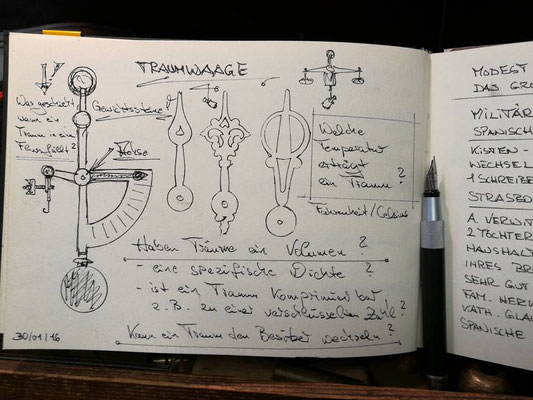 TRAUMWAAGE
Was geschieht
wenn ein
Traum in ein
Feuer fällt?
Gewichtssteine?
Welche
Temperatur
erträgt
ein Traum ?
Fahrenheit/Celsius
Haben Träume ein Volumen ?
- eine spezifische Dichte ?
- ist ein Traum komprimierbar
z.B. zu einer verschlüsselten Zahl ?
Kann ein Traum den Besitzer wechseln ?
30/01/16
MODEST
DAS GRO
MILITÄR
SPANISCH
KISTEN -
WECHSEL
1 SCHREIBE
STRASBO
A. VERWIT
2 TÖCHTER
HAUSHALT
IHRES BR
SEHR GUT
FAM. NERV
KATH. GLAU
SPANISCHE